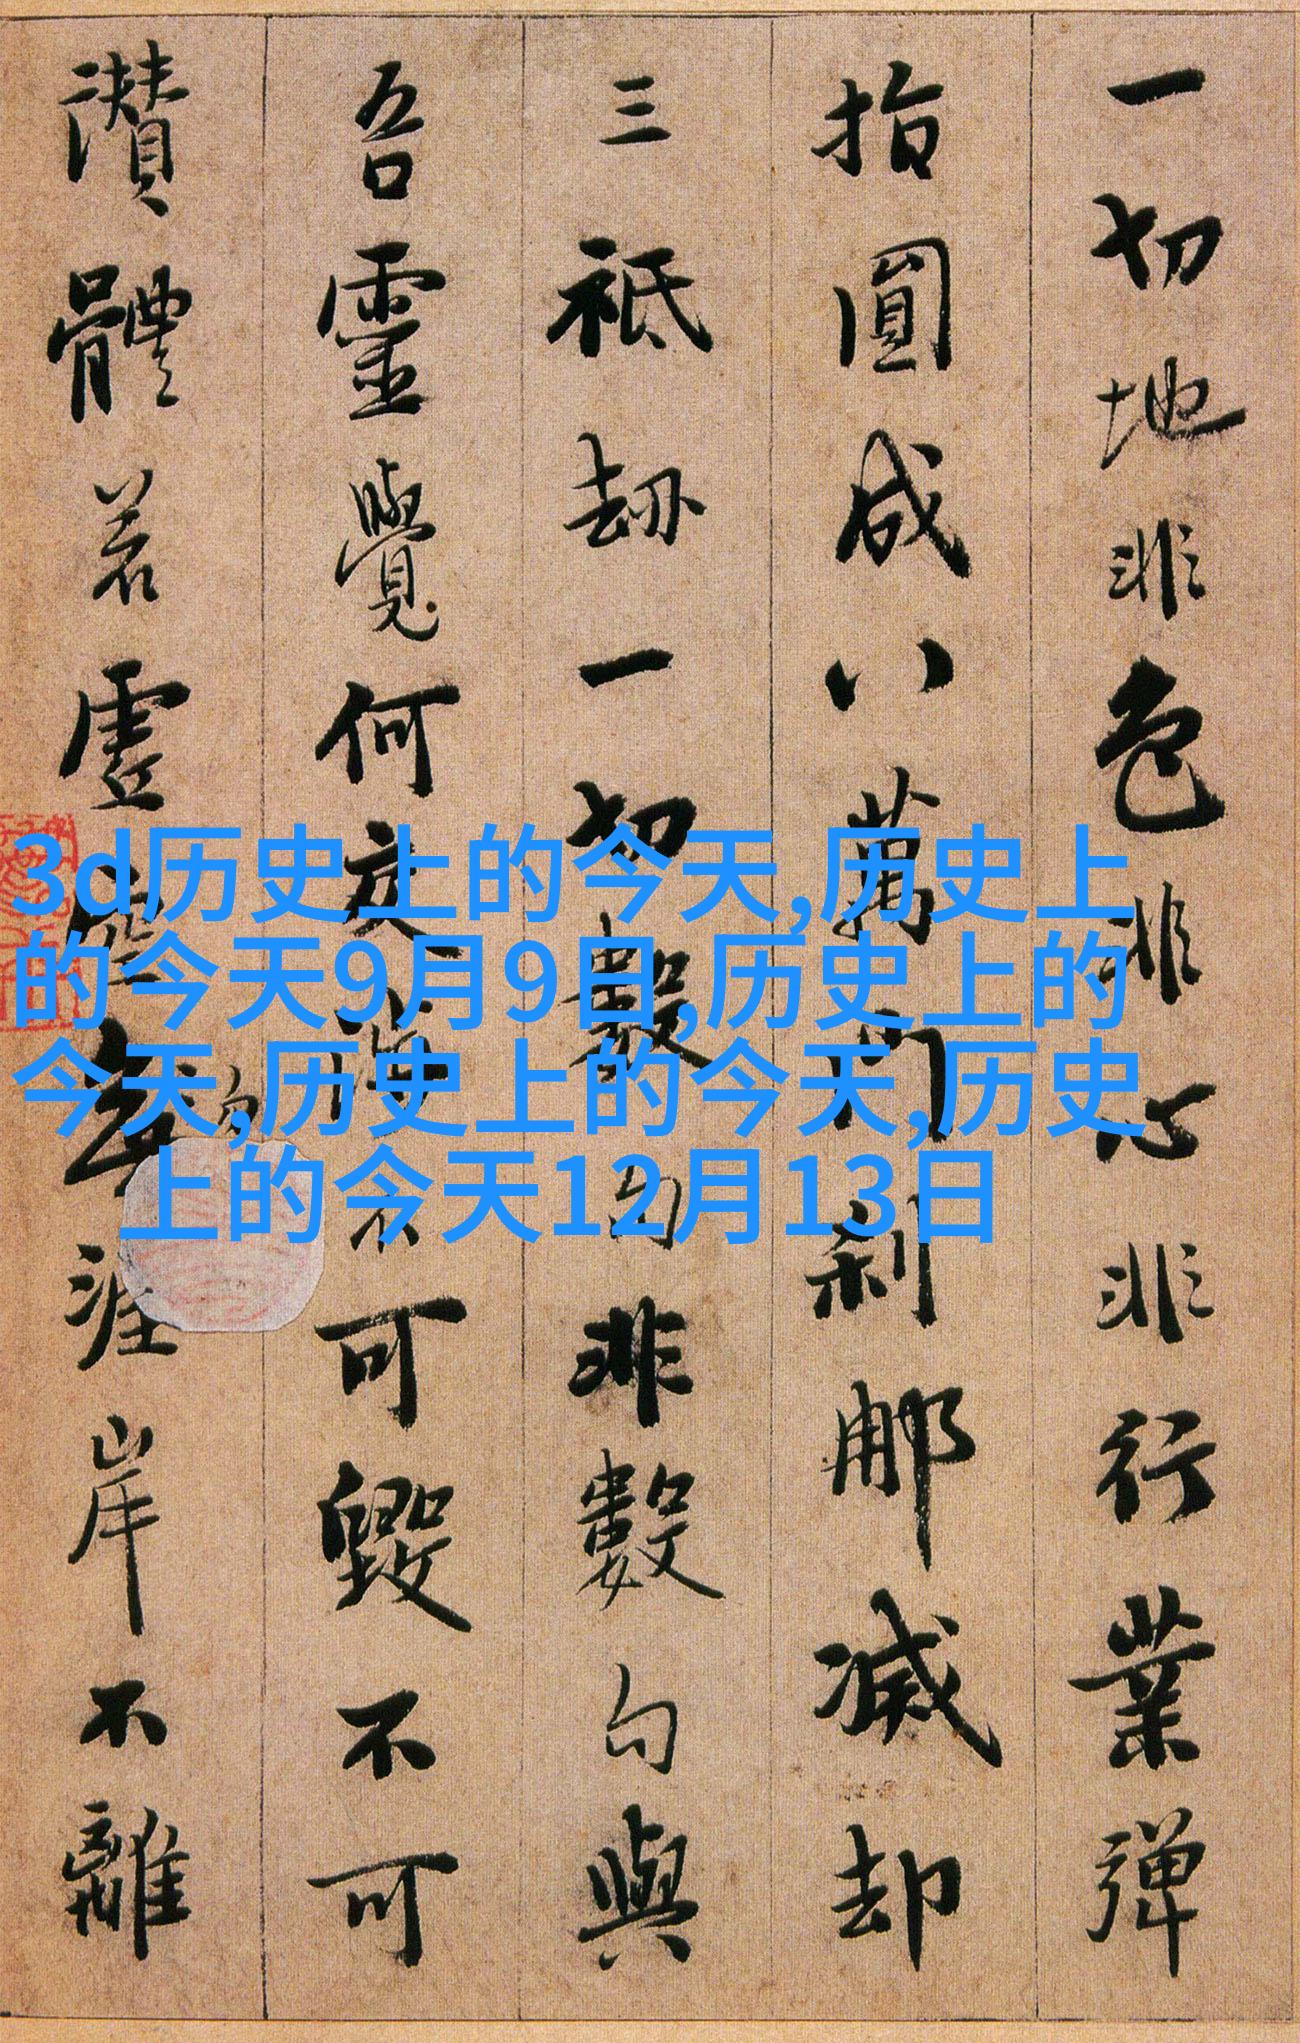 一切地非色非心非行業彈
指圓成八萬門刹那滅却
三祇劫一切數句非數句與
吾靈覺何交涉不可毀不可
讚體若虛空無涯岸不離
勿
3d历史上的今天,历史上
的今天9月9日,历史上的
今天,历史上的今天,历史
上的今天12月13日